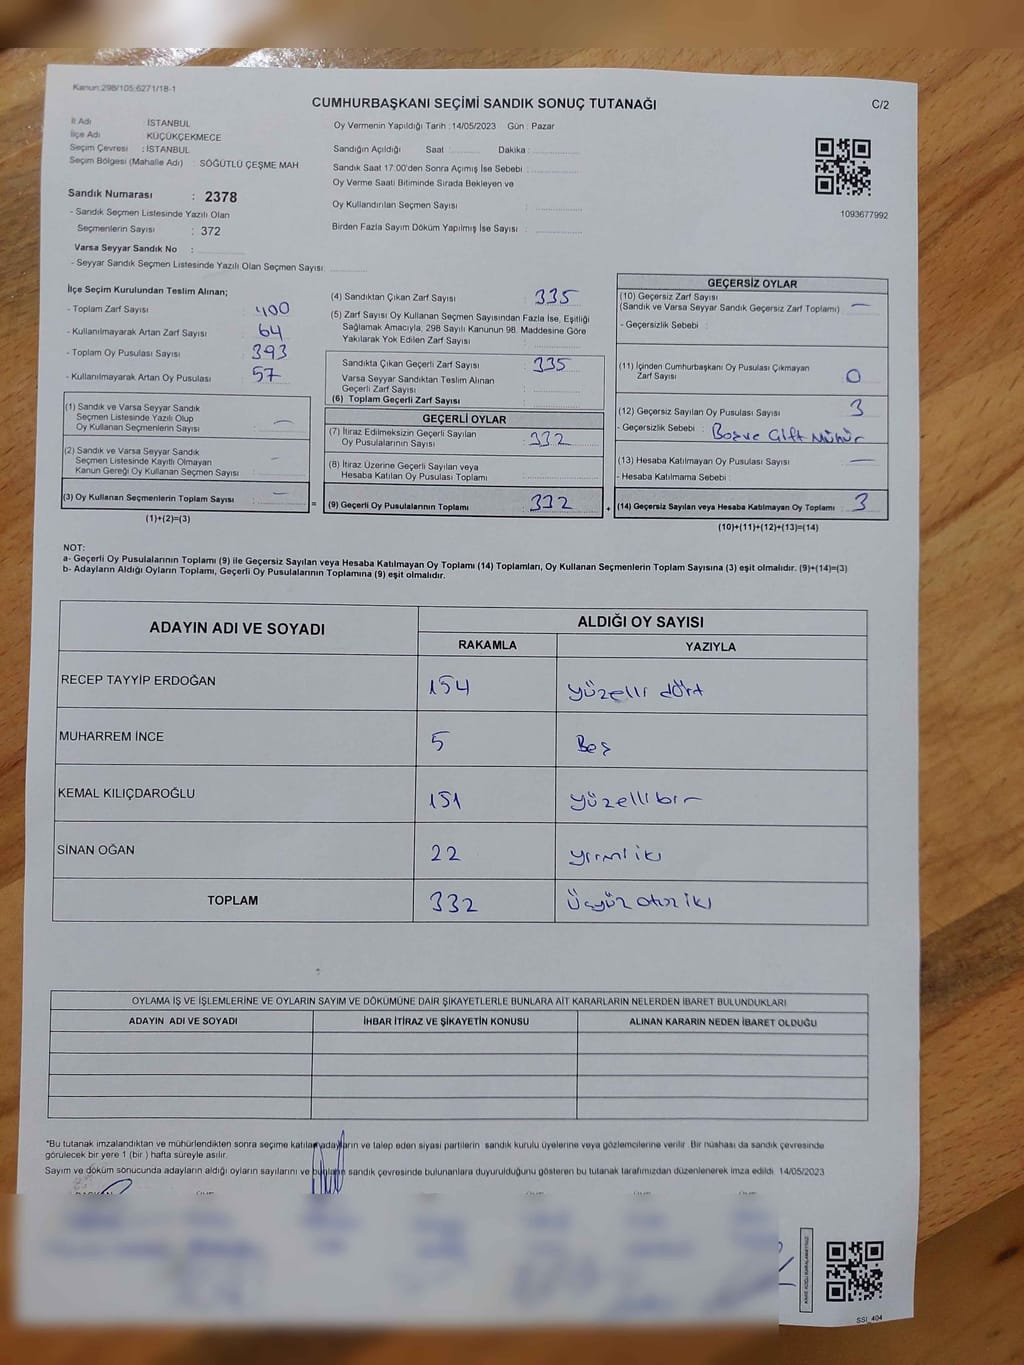 Kanun:298/105;6271/18-1
CUMHURBAŞKANI SEÇİMİ SANDIK SONUÇ TUTANAĞI
C/2
İl Adı : İSTANBUL
İlçe Adı : KÜÇÜKÇEKMECE
Seçim Çevresi : İSTANBUL
Seçim Bölgesi (Mahalle Adı) : SÖĞÜTLÜ ÇEŞME MAH
Sandık Numarası : 2378
- Sandık Seçmen Listesinde Yazılı Olan
Seçmenlerin Sayısı : 372
Varsa Seyyar Sandık No :
- Seyyar Sandık Seçmen Listesinde Yazılı Olan Seçmen Sayısı:
Oy Vermenin Yapıldığı Tarih :14/05/2023 Gün : Pazar
Sandığın Açıldığı Saat : Dakika :
Sandık Saat 17:00'den Sonra Açımış İse Sebebi :
Oy Verme Saati Bitiminde Sırada Bekleyen ve
Oy Kullandırılan Seçmen Sayısı :
Birden Fazla Sayım Döküm Yapılmış İse Sayısı :
1093677992
İlçe Seçim Kurulundan Teslim Alınan;
- Toplam Zarf Sayısı : 400
- Kullanılmayarak Artan Zarf Sayısı : 64
- Toplam Oy Pusulası Sayısı : 393
- Kullanılmayarak Artan Oy Pusulası : 57
(1) Sandık ve Varsa Seyyar Sandık
Seçmen Listesinde Yazılı Olup
Oy Kullanan Seçmenlerin Sayısı : —
(2) Sandık ve Varsa Seyyar Sandık
Seçmen Listesinde Kayıtlı Olmayan
Kanun Gereği Oy Kullanan Seçmen Sayısı : -
(3) Oy Kullanan Seçmenlerin Toplam Sayısı : —
(1)+(2)=(3)
=
(4) Sandıktan Çıkan Zarf Sayısı : 335
(5) Zarf Sayısı Oy Kullanan Seçmen Sayısından Fazla İse, Eşitliği
Sağlamak Amacıyla, 298 Sayılı Kanunun 98. Maddesine Göre
Yakılarak Yok Edilen Zarf Sayısı :
Sandıkta Çıkan Geçerli Zarf Sayısı : 335
Varsa Seyyar Sandıktan Teslim Alınan
Geçerli Zarf Sayısı :
(6) Toplam Geçerli Zarf Sayısı :
GEÇERLİ OYLAR
(7) İtiraz Edilmeksizin Geçerli Sayılan
Oy Pusulalarının Sayısı : 332
(8) İtiraz Üzerine Geçerli Sayılan veya
Hesaba Katılan Oy Pusulası Toplamı :
(9) Geçerli Oy Pusulalarının Toplamı : 332
+
GEÇERSİZ OYLAR
(10) Geçersiz Zarf Sayısı
(Sandık ve Varsa Seyyar Sandık Geçersiz Zarf Toplamı) : —
- Geçersizlik Sebebi :
(11) İçinden Cumhurbaşkanı Oy Pusulası Çıkmayan
Zarf Sayısı : 0
(12) Geçersiz Sayılan Oy Pusulası Sayısı : 3
- Geçersizlik Sebebi : Boşve Çift Mühür
(13) Hesaba Katılmayan Oy Pusulası Sayısı : —
- Hesaba Katılmama Sebebi :
(14) Geçersiz Sayılan veya Hesaba Katılmayan Oy Toplamı : 3
(10)+(11)+(12)+(13)=(14)
NOT:
a- Geçerli Oy Pusulalarının Toplamı (9) ile Geçersiz Sayılan veya Hesaba Katılmayan Oy Toplamı (14) Toplamları, Oy Kullanan Seçmenlerin Toplam Sayısına (3) eşit olmalıdır. (9)+(14)=(3)
b- Adayların Aldığı Oyların Toplamı, Geçerli Oy Pusulalarının Toplamına (9) eşit olmalıdır.
ADAYIN ADI VE SOYADI
ALDIĞI OY SAYISI
RAKAMLA YAZIYLA
RECEP TAYYİP ERDOĞAN 154 yüzelli dört
MUHARREM İNCE 5 Beş
KEMAL KILIÇDAROĞLU 151 yüzellibir
SİNAN OĞAN 22 yirmi iki
TOPLAM 332 Üçyüz otuz iki
OYLAMA İŞ VE İŞLEMLERİNE VE OYLARIN SAYIM VE DÖKÜMÜNE DAİR ŞİKAYETLERLE BUNLARA AİT KARARLARIN NELERDEN İBARET BULUNDUKLARI
ADAYIN ADI VE SOYADI İHBAR İTİRAZ VE ŞİKAYETİN KONUSU ALINAN KARARIN NEDEN İBARET OLDUĞU
*Bu tutanak imzalandıktan ve mühürlendikten sonra seçime katılan adayların ve talep eden siyasi partilerin sandık kurulu üyelerine veya gözlemcilerine verilir. Bir nüshası da sandık çevresinde
görülecek bir yere 1 (bir ) hafta süreyle asılır.
Sayım ve döküm sonucunda adayların aldığı oyların sayılarını ve bunların sandık çevresinde bulunanlara duyurulduğunu gösteren bu tutanak tarafımızdan düzenlenerek imza edildi. 14/05/2023
SSI_404